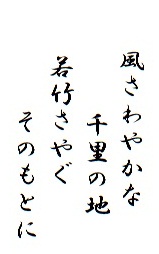 風さわやかな
千里の地
若竹さやぐ
そのもとに